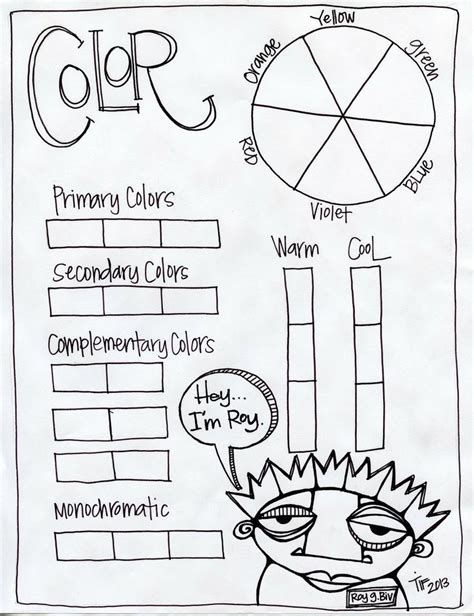 COLOR
Yellow
Orange
Green
RED
BLUE
Violet
Primary Colors
Secondary Colors
Complementary Colors
Monochromatic
Warm
Cool
Hey...
I'm Roy.
Roy g. Biv
TIF 2013